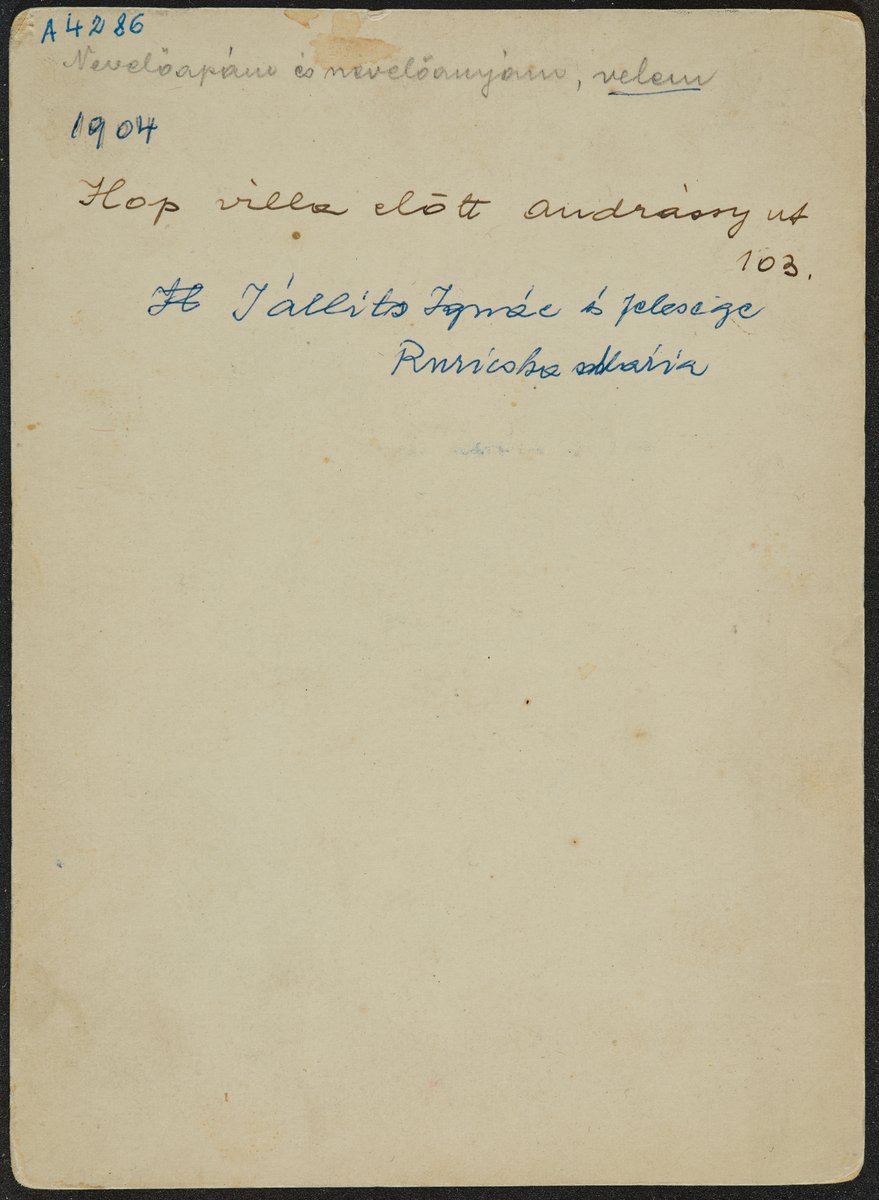 A 4286
Nevelőapám és nevelőanyám, velem
1904
Hop villa előtt Andrássy ut
103.
Jállits Ignác és felesége
Ruricska Mária